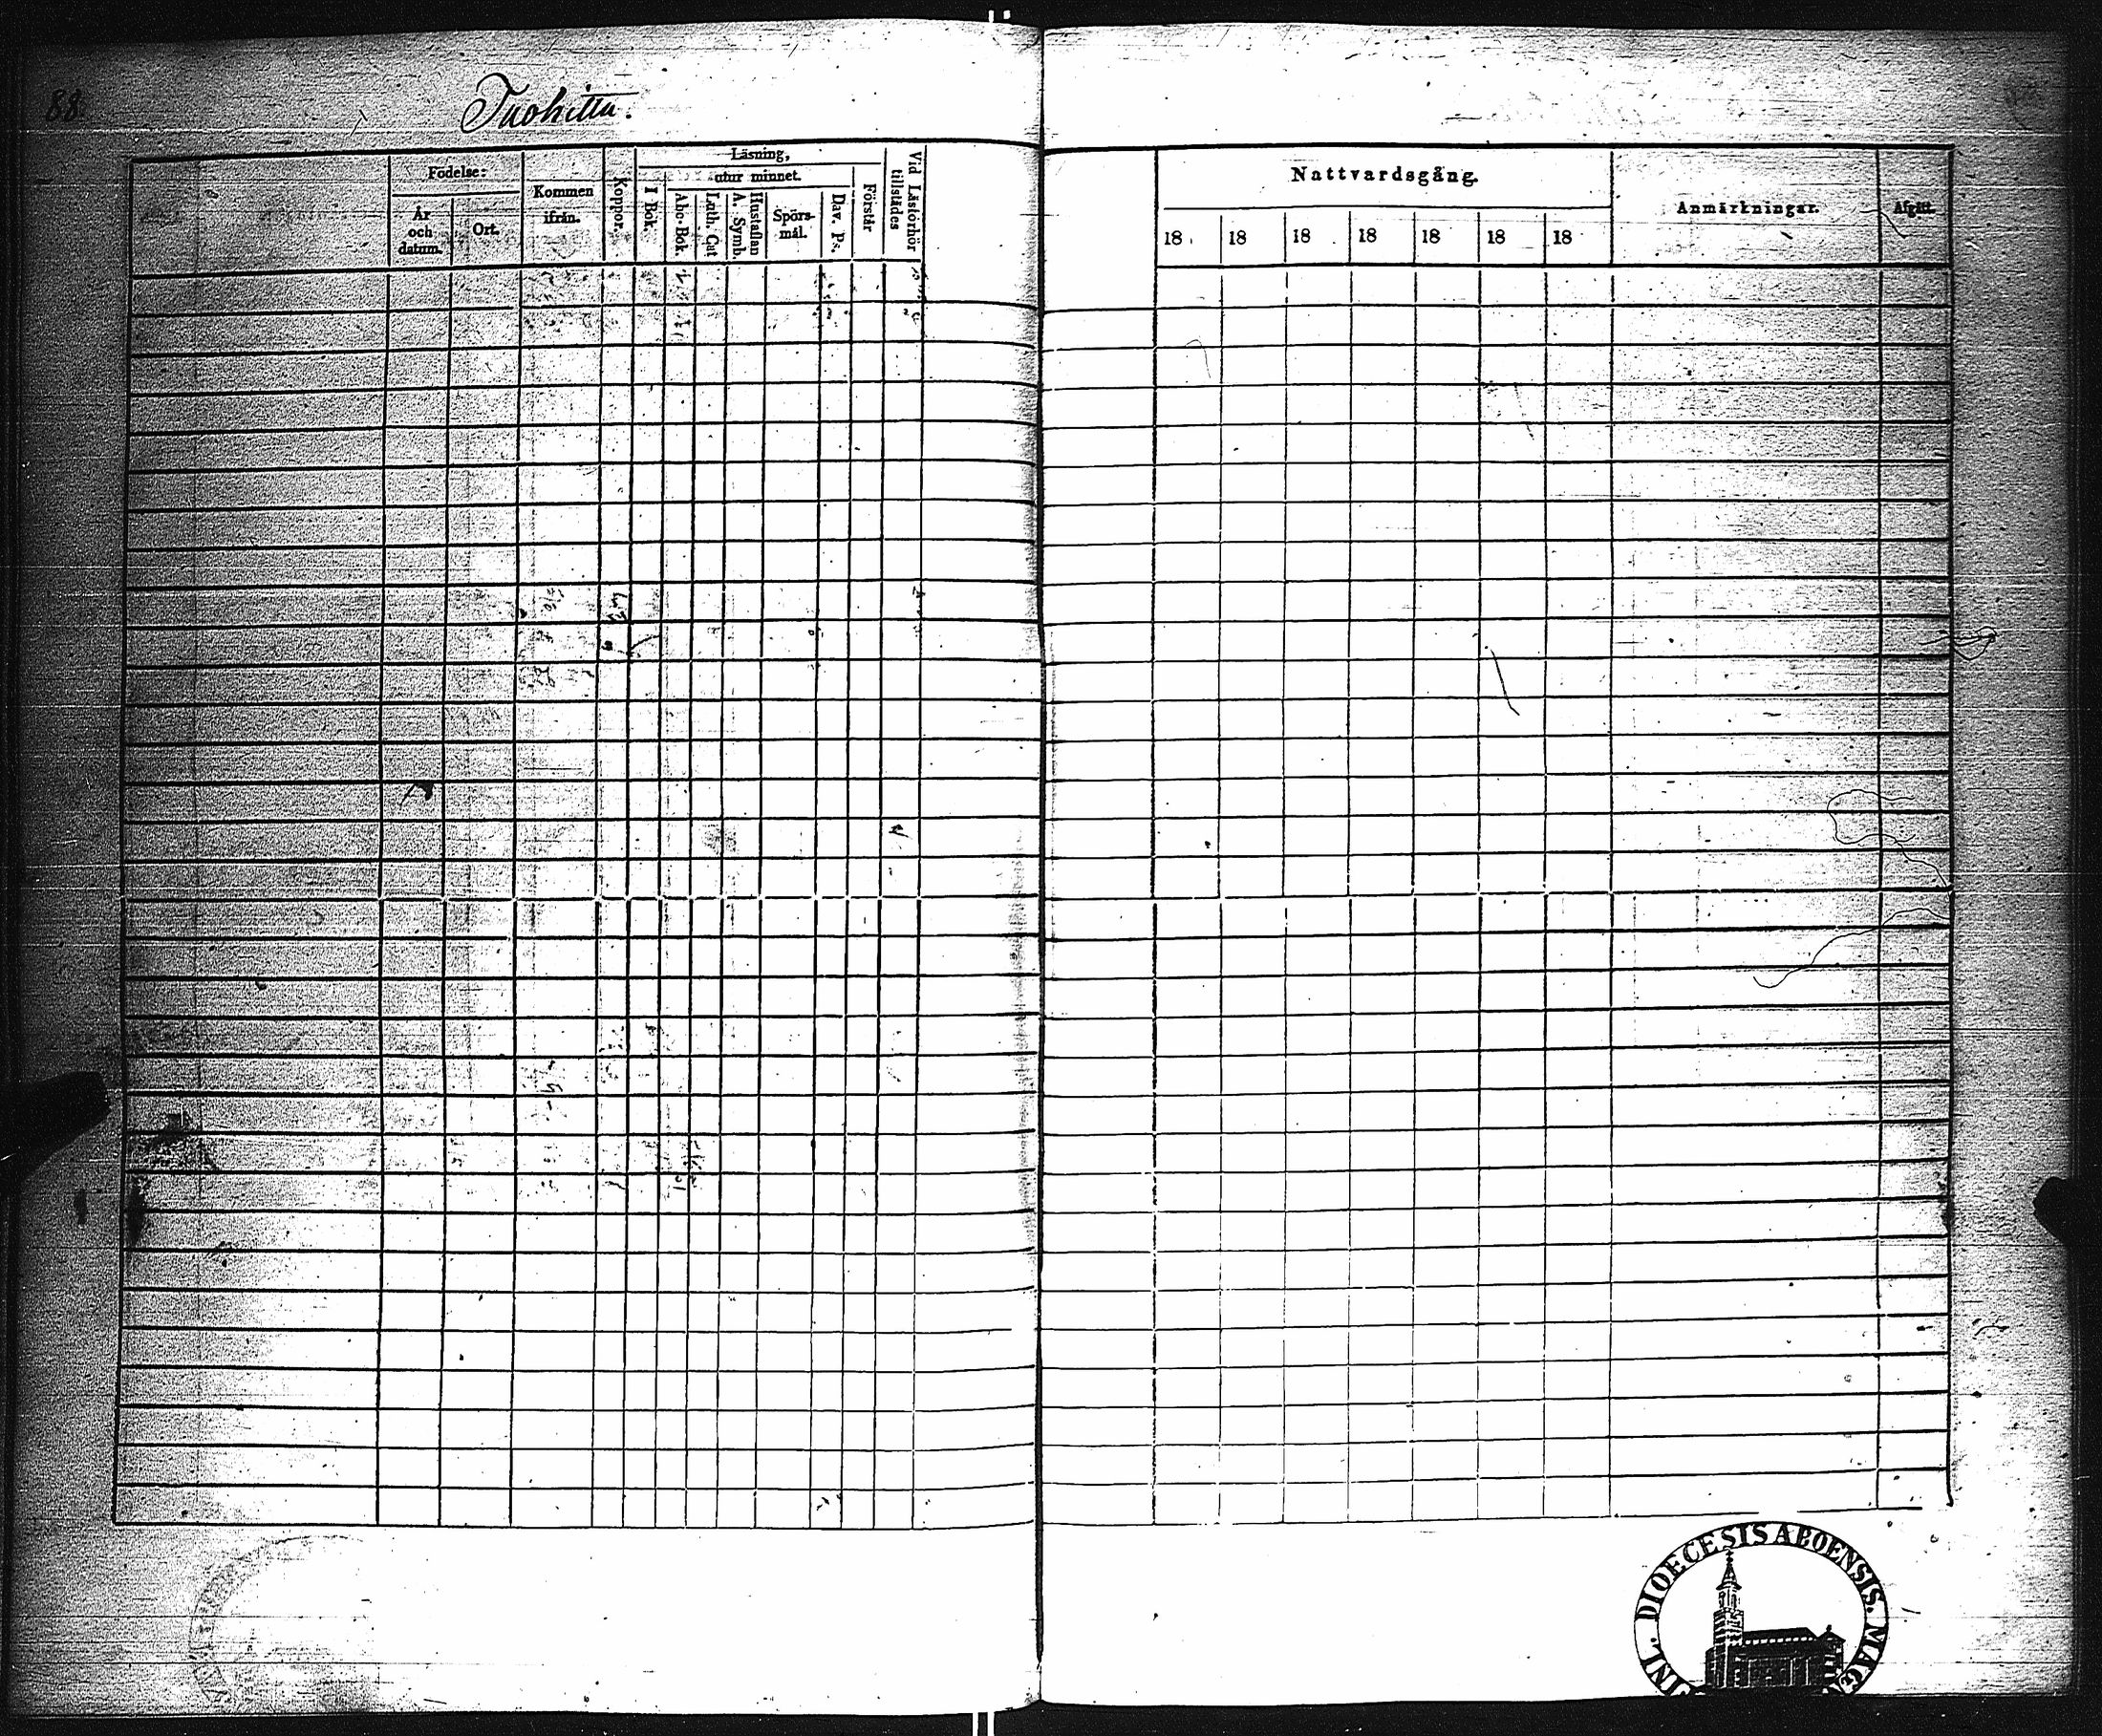 88.
Tuohitta.
Födelse:
År och datum.
Ort.
Kommen ifrån.
Koppor.
Läsning,
utur minnet.
I Bok.
Abc-Bok.
Luth. Cat
Hustaflan A. Symb.
Spörsmål.
Dav. Ps.
Förstår
Vid Läsförhör tillstädes
Nattvardsgång.
18 18 18 18 18 18 18
Anmärkningar.
Afgått.
FINL. DIOECESIS ABOENSIS. MAG